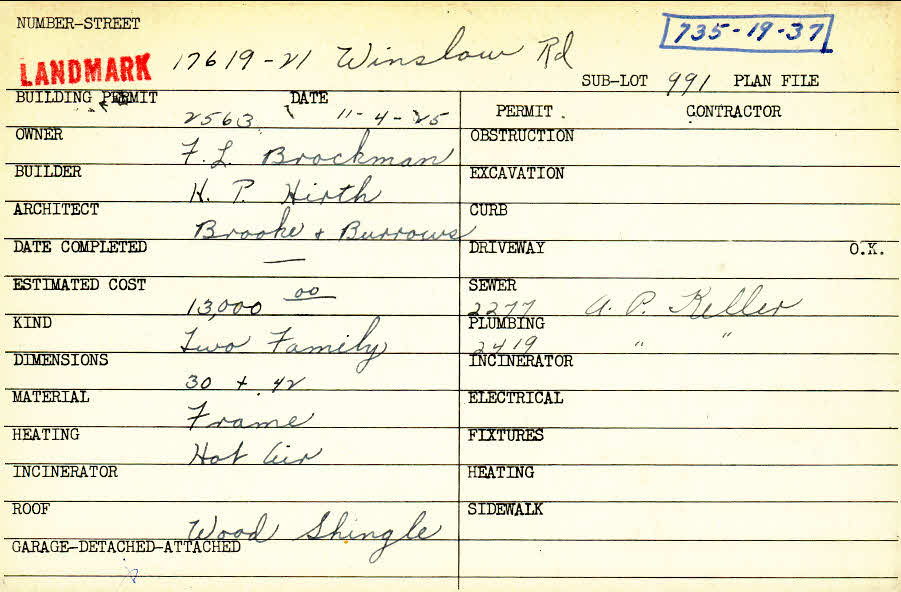 NUMBER-STREET
735-19-37
LANDMARK 17619-21 Winslow Rd
SUB-LOT 991 PLAN FILE
BUILDING PERMIT 2563 DATE 11-4-25
OWNER F. L. Brockman
BUILDER H. P. Hirth
ARCHITECT Brooke + Burrows
DATE COMPLETED —
ESTIMATED COST 13,000 00
KIND Two Family
DIMENSIONS 30 + 42
MATERIAL Frame
HEATING Hot Air
INCINERATOR
ROOF Wood Shingle
GARAGE-DETACHED-ATTACHED
PERMIT CONTRACTOR
OBSTRUCTION
EXCAVATION
CURB
DRIVEWAY O.K.
SEWER 2277 A. P. Keller
PLUMBING 2419 " "
INCINERATOR
ELECTRICAL
FIXTURES
HEATING
SIDEWALK